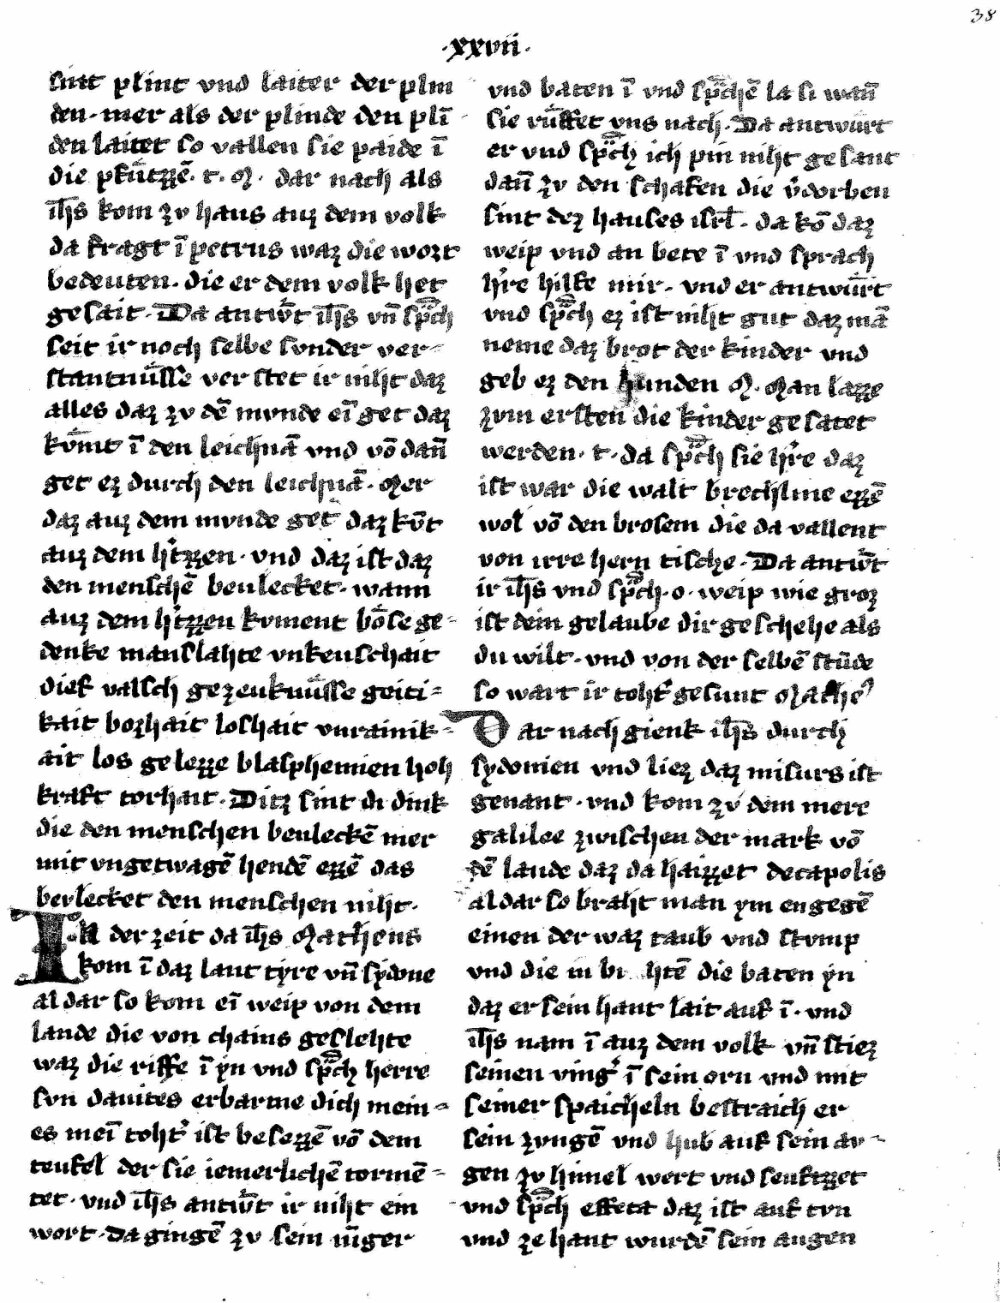 38
·xxvii·
sint plint vnd laiter der plin
den· mer als der plinde den plī
den laitet so vallen sie paide ī
die pfůtzzē· t· M· dar nach als
ih̄s kom zv haus auz dem volk
da fragt ī petrus waz die wort
bedeuten· die er dem volk het
gesait· Da antwͦt ih̄s vn̄ sp̄ch
seit ir noch selbe svnder ver
stantnůsse ver stet ir niht daz
alles daz zv dē mvnde eī get daz
kv̊mt ī den leichnā vnd vō dan̄
get ez durch den leichnā· Mer
daz auz dem mvnde get daz kv̄t
auz dem h'tzzen· vnd daz ist daz
den menschē beulecket· wann
auz dem h'tzzen koment bo̊se ge-
denke manslahte vnkeuschait
dief valsch gezeuknůsse geiti-
kait bozhait loshait vnrainik-
ait los gelezze blasphemien hoh
kraft torhait· Ditz sint di dink
die den menschen beuleckē mer
mit vngetwagē hendē ezzē das
bevlecket den menschen niht·
IN der zeit da ih̄s Matheus
kom ī daz laut tyre vn̄ sydone
al dar so kom eī weip von dem
lande die von chains geslehte
waz die riffe ī yn vnd sp̄ch herre
svn dauites erbarme dich mein-
es meī toht' ist besezzē vō dem
teufel der sie iemerlichē tormē-
tet· vnd ih̄s antwͦt ir niht ein
wort· da gingē zv sein iu̅ger
vnd baten ī vnd sp̄chē la si wan̄
sie růffet vns nach· Da antwůrt
er vnd sp̄ch ich pin niht gesant
dan̄ zv den schafen die v'dorben
sint dez hauses isrl̄· da kō daz
weip vnd an bete ī vnd sprach
h're hilfe mir· vnd er antwůrt
vnd sp̄ch ez ist niht gut daz mā
neme daz brot der kinder vnd
geb ez den hunden M· Man lazze
zvm ersten die kinder gesatet
werden· t· da sp̄ch sie h're daz
ist war die walt brechline ezzē
wol vō den brosem die da vallent
von irre hern tische· Da antwͦt
ir ih̄s vnd sp̄ch· o· weip wie groz
ist dein gelaube dir geschehe als
du wilt· vnd von der selbē stūde
so wart ir toht' gesunt Mathe'
Dar nach gienk ih̄s durch
sydonien vnd liez daz misurs ist
genant· vnd kom zv dem mere
galilee zwischen der mark vō
dē lande daz da haizzet decapolis
aldar so braht man ym engegē
einen der waz taub vnd stvmp
vnd die in htē die baten yn
daz er sein hant lait auf ī· vnd
ih̄s nam ī auz dem volk vn̄ stiez
seinen ving' ī sein orn vnd mit
seiner spaicheln bestraich er
sein zvngē vnd hub auf sein av-
gen zv himel wert vnd seuftzzet
vnd sp̄ch effeta daz ist auf tvn
vnd ze hant wurdē sein augen